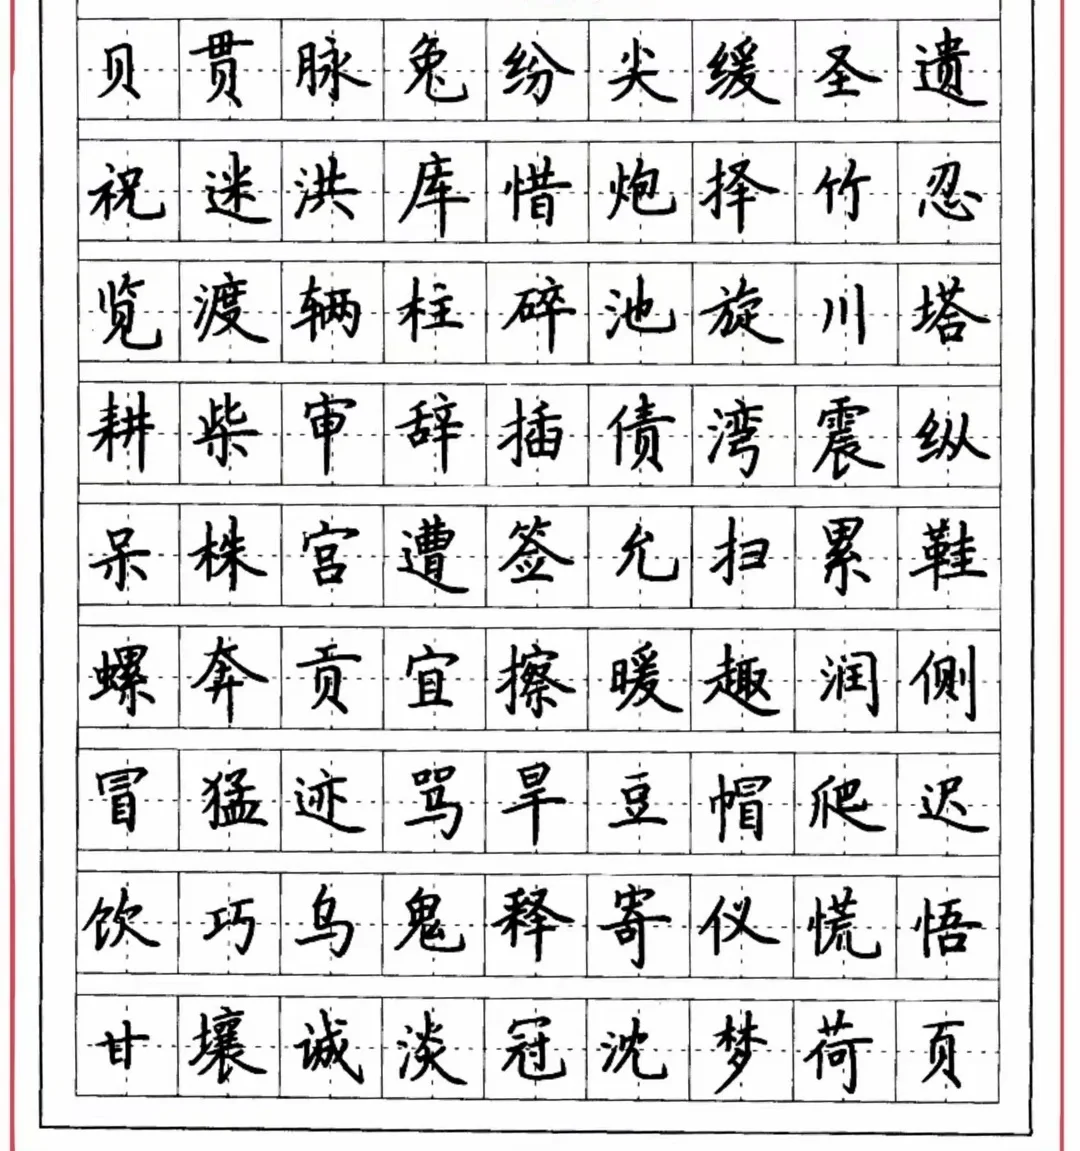 贝贯脉兔纷尖缓圣遗
祝迷洪库惜炮择竹忍
览渡辆柱碎池旋川塔
耕柴审辞插债湾震纵
呆株宫遭签允扫累鞋
螺奔贡宜擦暖趣润侧
冒猛迹骂旱豆帽爬迟
饮巧乌鬼释寄仪慌悟
甘壤诚淡冠沈梦荷页